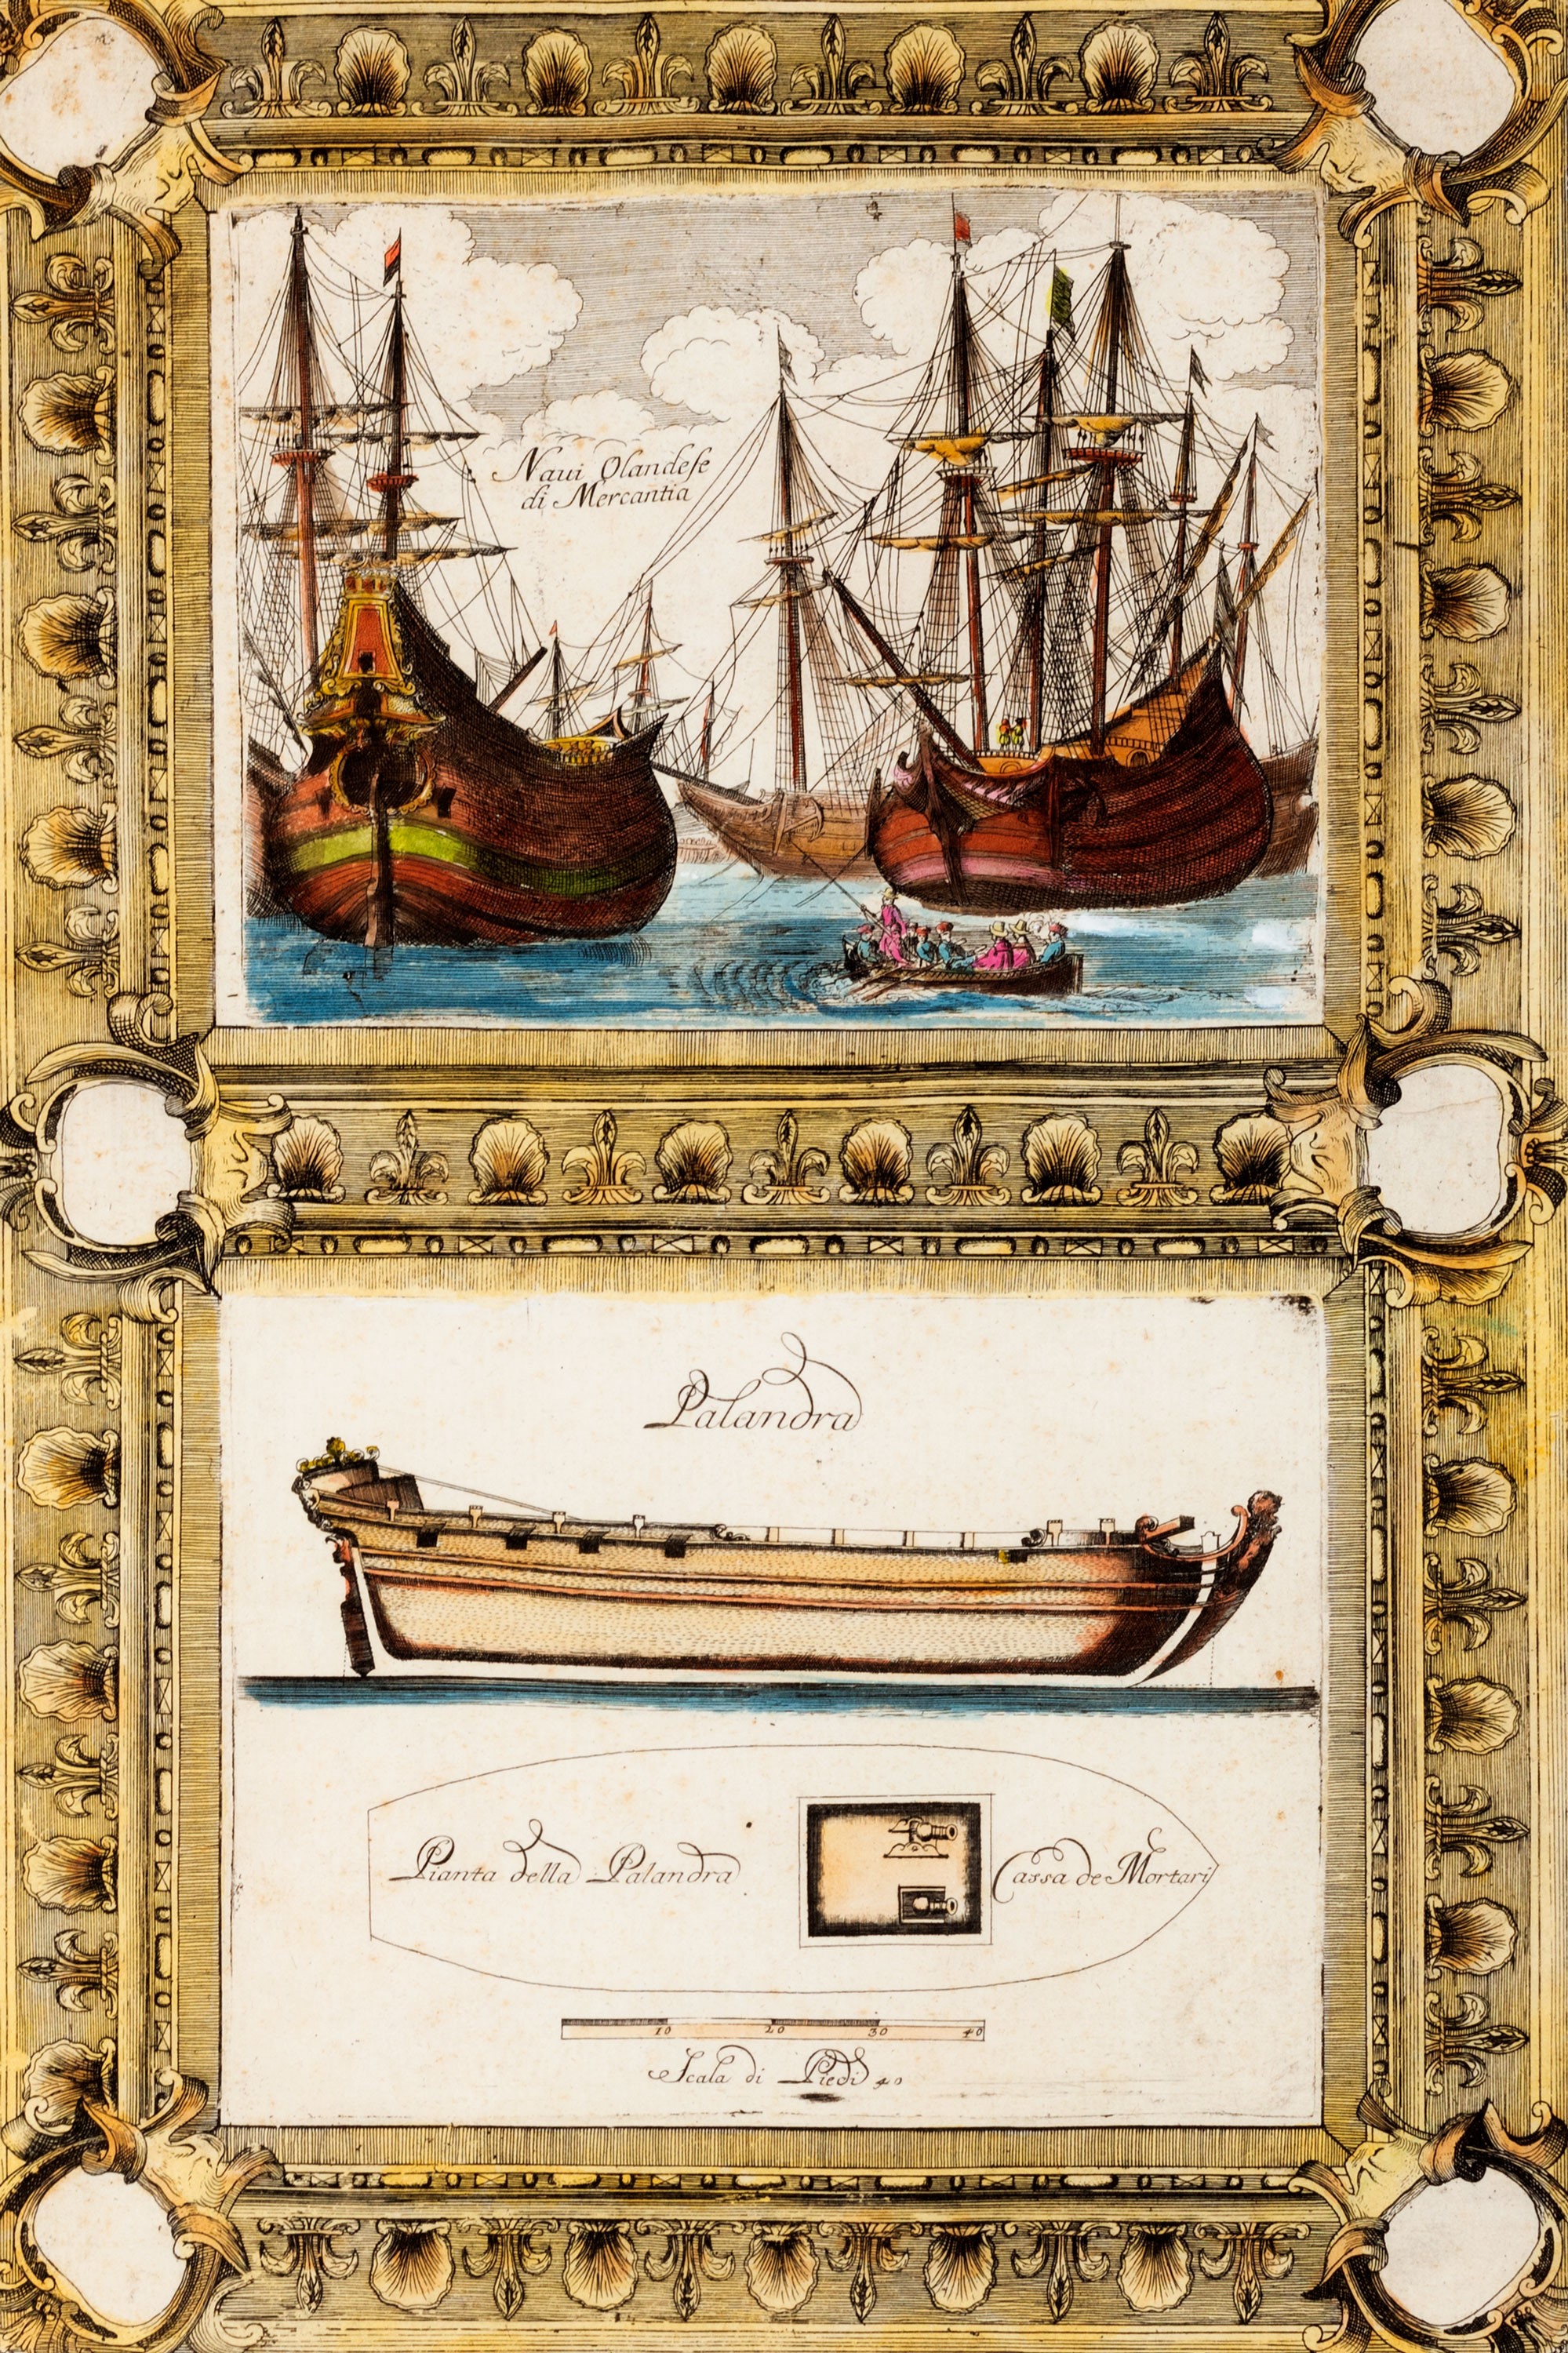 Naui Olandeſe
di Mercantia
Palandra
Pianta della Palandra
Cassa de Mortari
10 20 30 40
Scala di Piedi 40